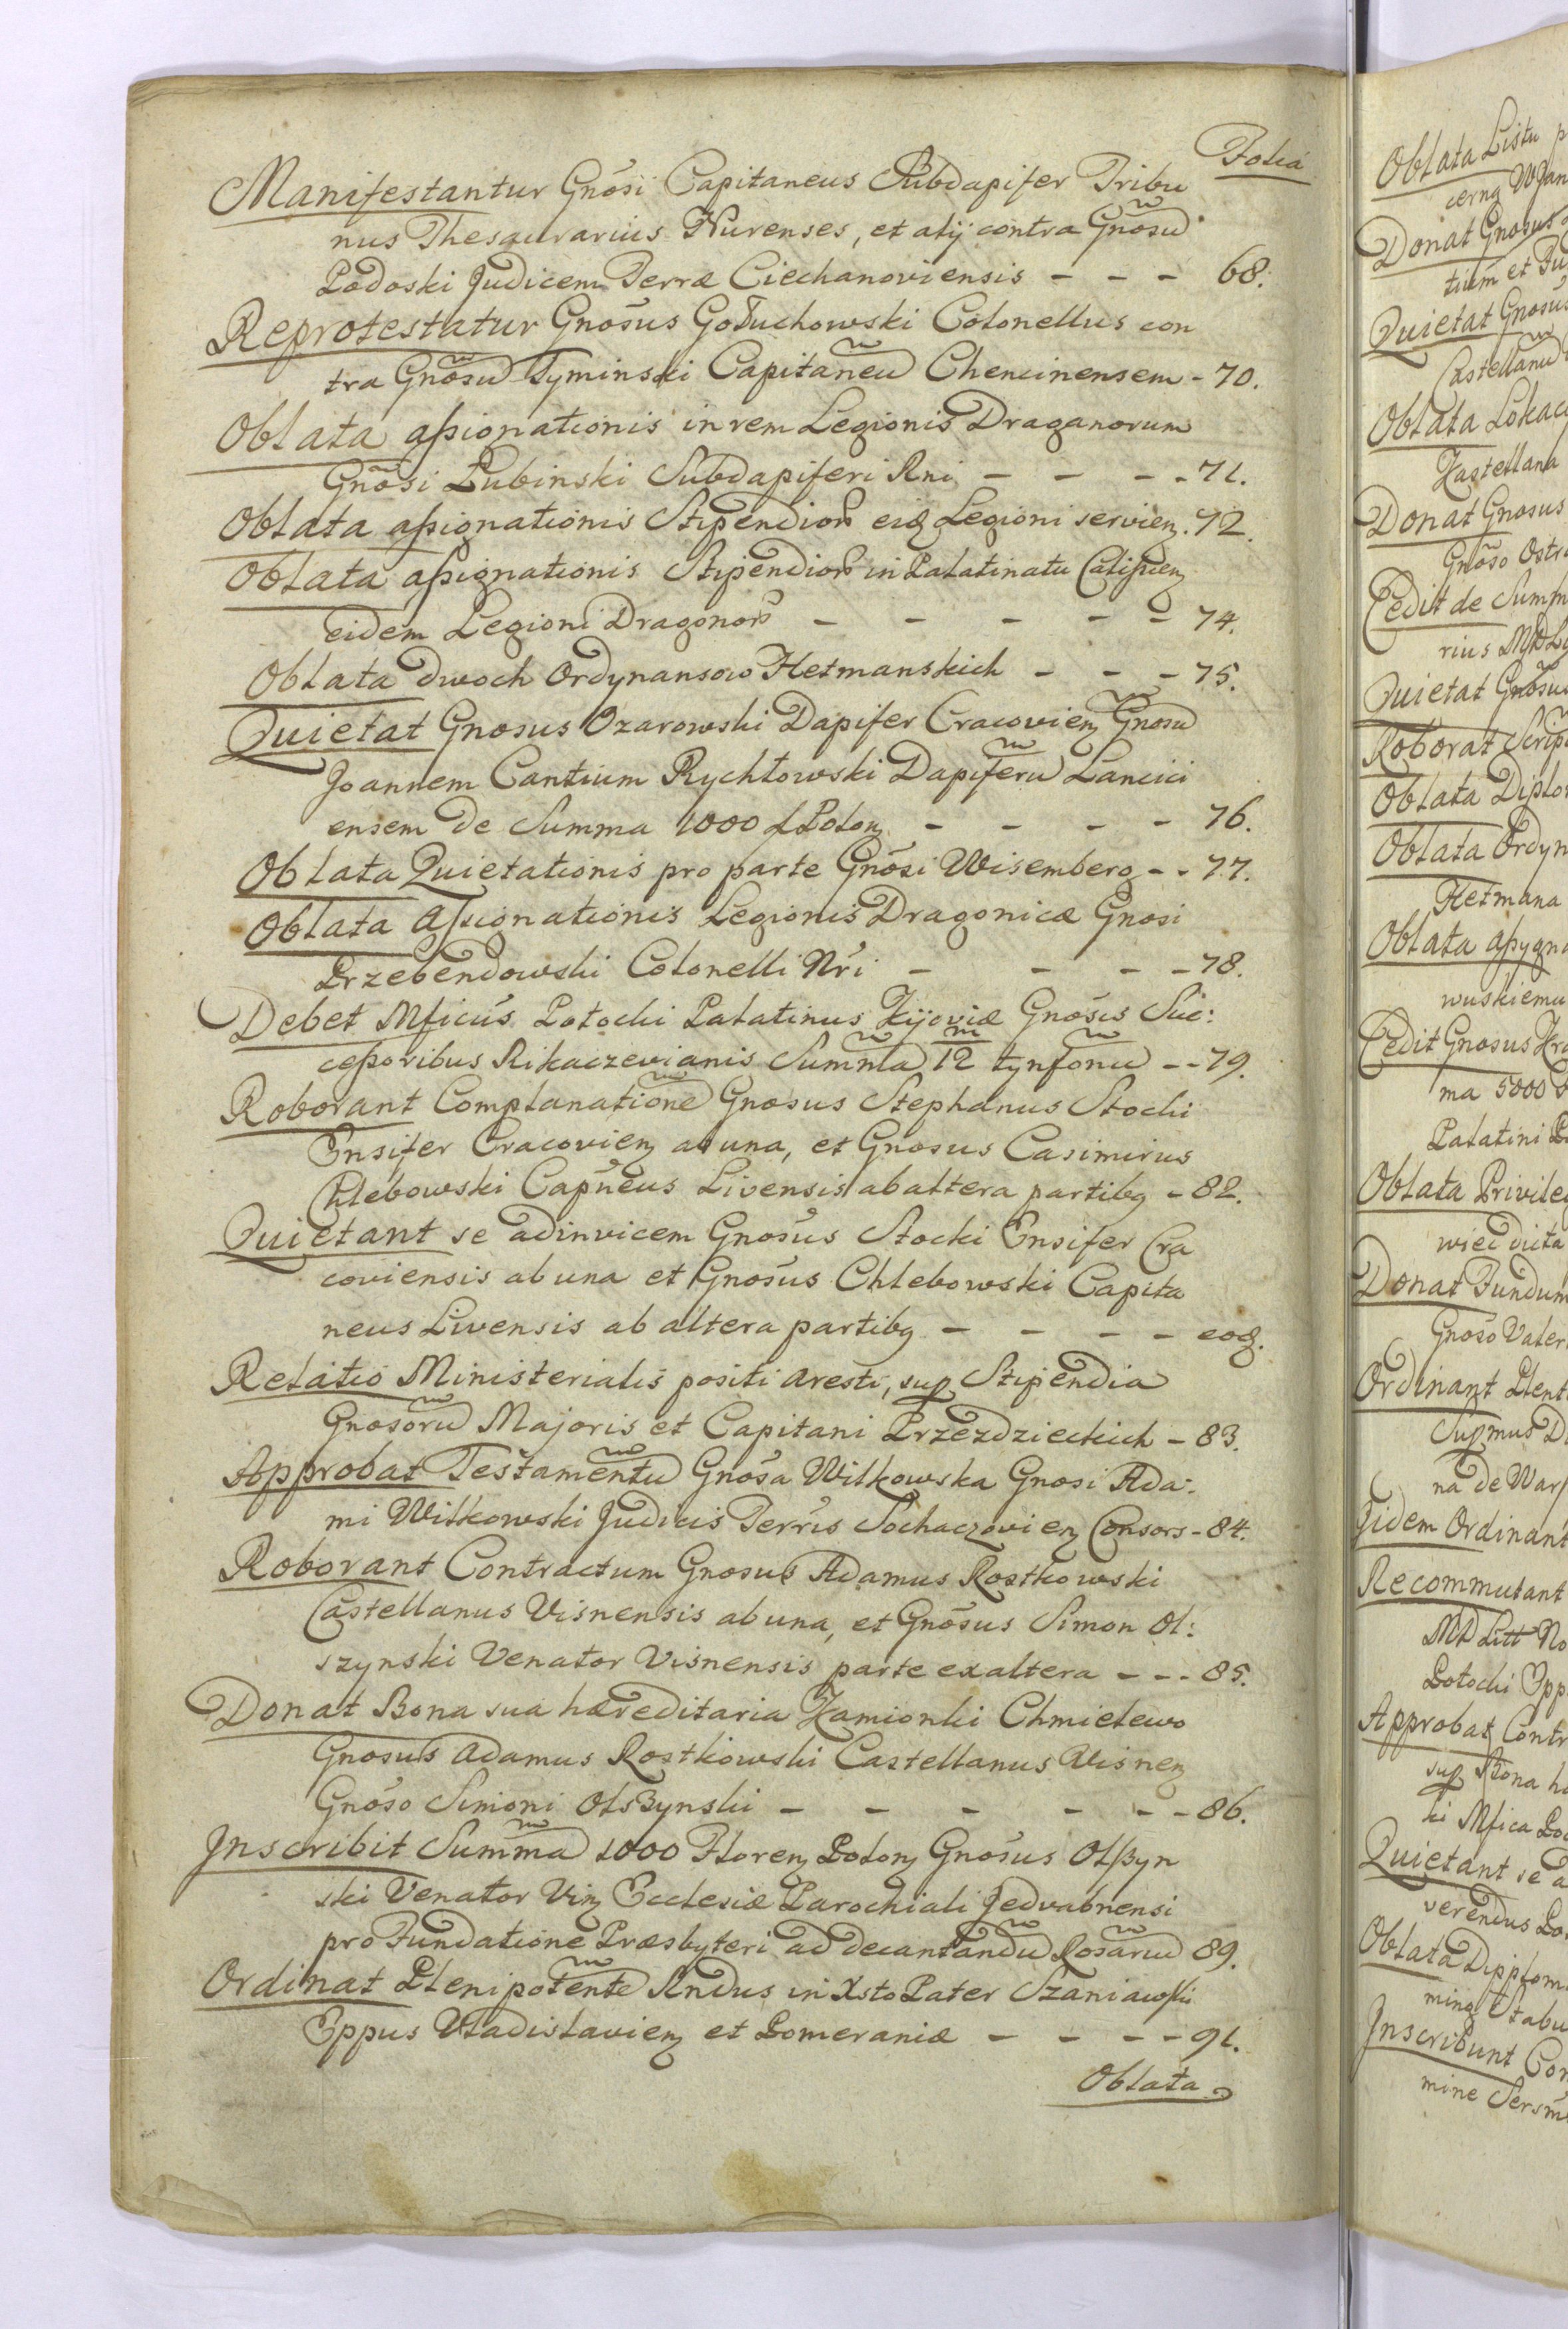 Folia
Manifestantur Gnosi Capitaneus Subdapifer Tribu
nus Thesaurarius Nurenses, et alij contra Gnosu
Podoski Judicem Terræ Ciechanoviensis - - - 68.
Reprotestatur Gnosus Gołuchowski Colonellus con
tra Gnosu Tyminski Capitaneu Chencinensem - 70.
Oblata assignationis in rem Legionis Draganorum
Gnosi Lubinski Subdapiferi Rni - - - - 71.
Oblata assignationis Stipendior eidem Legioni servien. 72.
Oblata assignationis Stipendior in Palatinatu Calissien
eidem Legioni Dragonor - - - - - 74.
Oblata dwoch Ordynansow Hetmanskich - - - 75.
Quietat Gnosus Ozarowski Dapifer Cracovien Gnosu
Joannem Cantium Rychłowski Dapiferu Lancici
ensem de Summa 1000 f Polon - - - - 76.
Oblata Quietationis pro parte Gnosi Wisemberg - - 77.
Oblata Assignationis Legionis Dragonicæ Gnosi
Przebendowski Colonelli Nri - - - - 78.
Debet Mficus Potocki Palatinus Kijoviæ Gnosis Suc:
cessoribus Rikaczevianis Summa 12 tynfonu - - 79.
Roborant Complanatione Gnosus Stephanus Stocki
Ensifer Cracovien ab una, et Gnosus Casimirus
Chlebowski Capneus Livensis ab altera partibq - 82.
Quietant se adinvicem Gnosus Stocki Ensifer Cra
coviensis ab una et Gnosus Chlebowski Capita
neus Livensis ab altera partibq - - - - eod.
Relatio Ministerialis positi Aresti, sup Stipendia
Gnosoru Majoris et Capitani Przezdzieckich - 83.
Approbat Testamentu Gnosa Witkowska Gnosi Ada:
mi Witkowski Judicis Terris Sochaczovien Consors - 84.
Roborant Contractum Gnosus Adamus Rostkowski
Castellanus Visnensis ab una, et Gnosus Simon Ol:
szynski Venator Visnensis parte ex altera - - - 85.
Donat Bona sua hæreditaria Kamionki Chmielewo
Gnosus Adamus Rostkowski Castellanus Visnen
Gnoso Simoni Olszynski - - - - - - 86.
Inscribit Summa 1000 Floren Polon Gnosus Olszyn
ski Venator Vin Ecclesiæ Parochiali Jedvabnensi
pro Fundatione Præsbyteri ad decantandu Rosariu 89.
Ordinat Plenipotente Rndus in Xsto Pater Szaniawski
Eppus Vladislavien et Pomeraniæ - - - - 91.
Oblata
Oblata Listu
Donat Gnosus
Quietat Gnosus
Castellanu
Oblata Lokac
Kastellana
Donat Gnosus
Gnoso Ostr
Cedit de Summ
Quietat Gnosus
Roborat Scrip
Oblata Diplo
Oblata Ordyn
Hetmana
Oblata assygn
wuskiemu
Cedit Gnosus
ma 5000
Palatini
Oblata Privile
Donat Fundum
Gnoso Valer
Ordinant Plent
Supmus
na de War
Iidem Ordinant
Recommutant
Potocki Epp
Approbat Contr
sup Bona
ki Mfica
Quietant se
verendus
Oblata Diplom
Inscribunt Con
mine